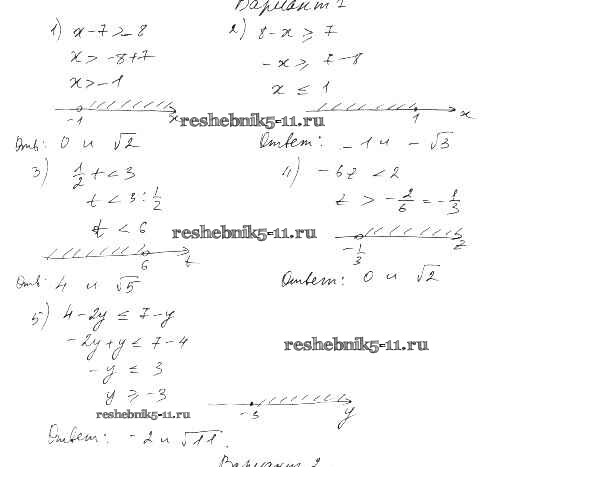 Вариант 1
1) x - 7 > -8
x > -8+7
x > -1
-1
x
Отв: 0 и √2
2) 8 - x ≥ 7
-x ≥ 7-8
x ≤ 1
1
x
Ответ: -1 и -√3
reshebnik5-11.ru
3) 1/2 t < 3
t < 3 : 1/2
t < 6
6
t
Отв: 4 и √5
4) -6z < 2
z > -2/6 = -1/3
-1/3
z
Ответ: 0 и √2
reshebnik5-11.ru
5) 4 - 2y ≤ 7 - y
-2y + y ≤ 7 - 4
-y ≤ 3
y ≥ -3
-3
y
reshebnik5-11.ru
reshebnik5-11.ru
Ответ: -2 и √11.
Вариант 2